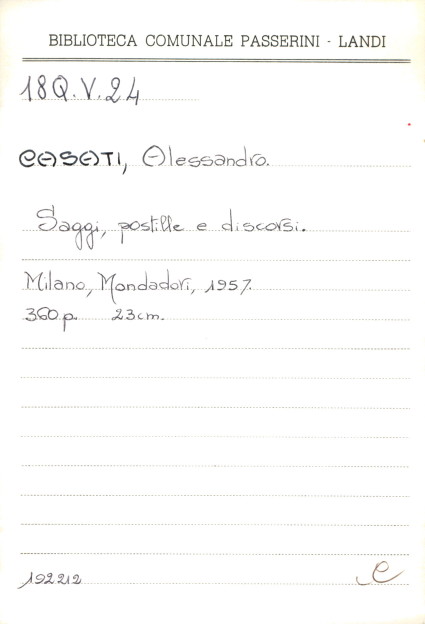 BIBLIOTECA COMUNALE PASSERINI - LANDI
18Q.V.24
CASATI, Alessandro.
Saggi, postille e discorsi.
Milano, Mondadori, 1957.
360 p. 23 cm.
192212 C